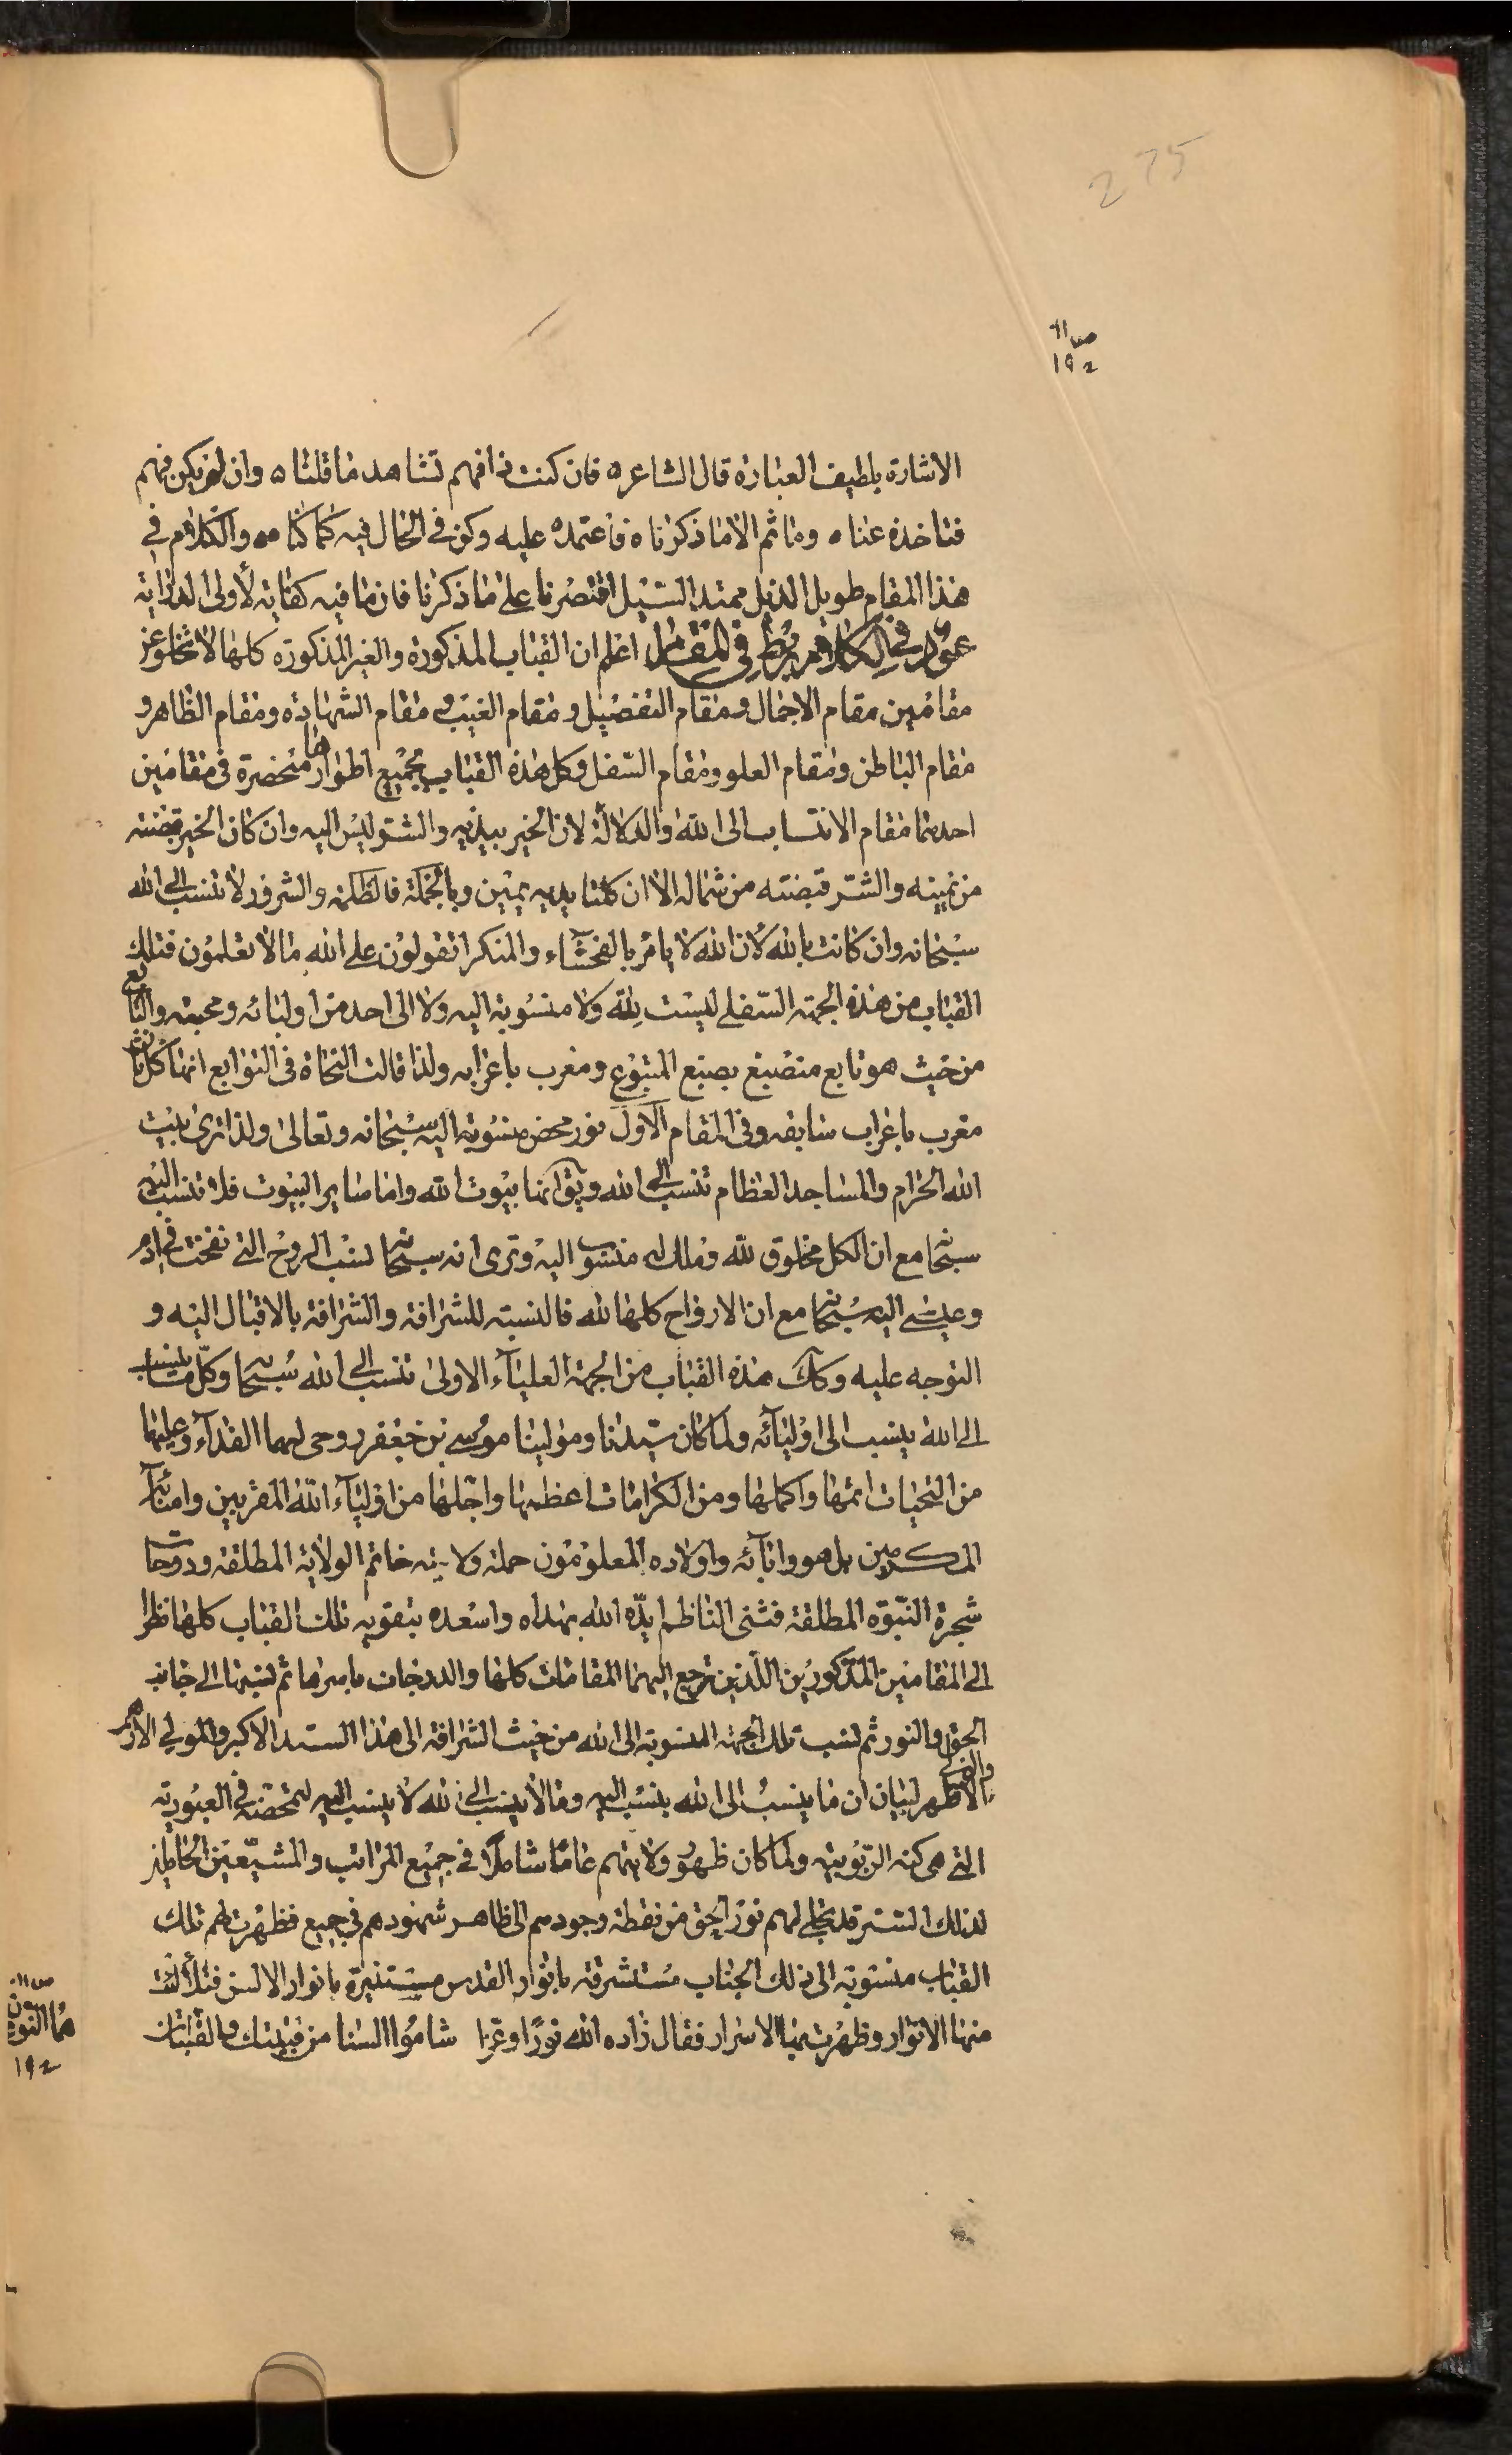 275
ص ١١
١٩٢
الاشارة بلطيف العبارة قال الشاعر ٥ فان كنت ذا فهم تشاهد ما قلنا ٥ وان لم يكن فهم
فتاخذه عنا ٥ وما ثم الا ما ذكرناه فاعتمد ٥ عليه وكن في الحال فيه كما كنا ٥٥ والكلام في
هذا المقام طويل الذيل ممتد السيل اقتصرنا على ما ذكرنا فان ما فيه كفاية لأولى الدراية
عود في الكلام يربط في المقام اعلم ان القباب المذكورة والغير المذكورة كلها لا تخلو عن
مقامين مقام الاجمال ومقام التفصيل و مقام الغيب و مقام الشهادة ومقام الظاهر و
مقام الباطن ومقام العلو ومقام السفل وكل هذه القباب بجميع اطوارها منحصرة في مقامين
احدهما مقام الانتساب الى الله والدلالة لان الخير بيديه والشر ليس اليه وان كان الخير قبضته
من يمينه والشر قبضته من شماله الا ان كلتا يديه يمين وبالجملة فالظلمة والشرور لا تنسب الى الله
سبحانه وان كانت بالله لان الله لا يامر بالفحشاء والمنكر اتقولون على الله ما لا تعلمون فتلك
القباب من هذه الجهة السفلى ليست لله ولا منسوبة اليه ولا الى احد من اوليائه ومحبيه والتابع
من حيث هو تابع منصبغ بصبغ المتبوع ومعرب باعرابه ولذا قالت النحاة في التوابع انها كل ثان
معرب باعراب سابقه وفي المقام الاول نور محض منسوبة اليه سبحانه وتعالى ولذا ترى بيت
الله الحرام والمساجد العظام تنسب الى الله ويق انها بيوت الله واما ساير البيوت فلا تنسب اليه
سبحانه مع ان الكل مخلوق لله وملك له منسوب اليه وترى انه سبحانه نسب الروح التي نفخت في ادم
وعيسى اليه سبحانه مع ان الارواح كلها لله فالنسبة للشرافة والشرافة بالاقبال اليه و
التوجه عليه وكك هذه القباب من الجهة العلياء الاولى تنسب الى الله سبحانه وكل ما ينسب
الى الله ينسب الى اوليائه ولما كان سيدنا ومولينا موسى بن جعفر روحى لهما الفداء وعليهما
من التحيات اتمها واكملها ومن الكرامات اعظمها واجلها من اولياء الله المقربين وامنائه
المكرمين بل هو وابائه واولاده المعلومون حملة ولاية خاتم الولاية المطلقة ودوحات
شجرة النبوة المطلقة فثنى الناظم ايده الله بهداه واسعده بتقويه تلك القباب كلها نظرا
الى المقامين المذكورين اللذين ترجع اليهما المقامات كلها والدرجات باسرها ثم نسبها الى جانب
الحق والنور ثم نسب تلك الجهة المنسوبة الى الله من حيث الشرافة الى هذا السيد الاكبر والمولى الازهر
والاطهر لبيان ان ما ينسب الى الله ينسب اليه وما لا ينسب الى الله لا ينسب اليه لتمحضه في العبودية
التي هي كنه الربوبية ولما كان ظهور ولايتهم عاما شاملا في جميع المراتب والمشيعين الحاملين
لذلك الستر قد تجلى لهم نور الحق من نقطة وجودهم الى ظاهر شهودهم في جميع فظهرت لهم تلك
القباب منسوبة الى ذلك الجناب مستشرقة بانوار القدس مستنيرة بانوار الانس فتلألئت
منها الانوار وظهرت بها الاسرار فقال زاده الله نورا وعزا شاموا السنا من قبتيك والقبتان
ص ١١
ون
١٩٢